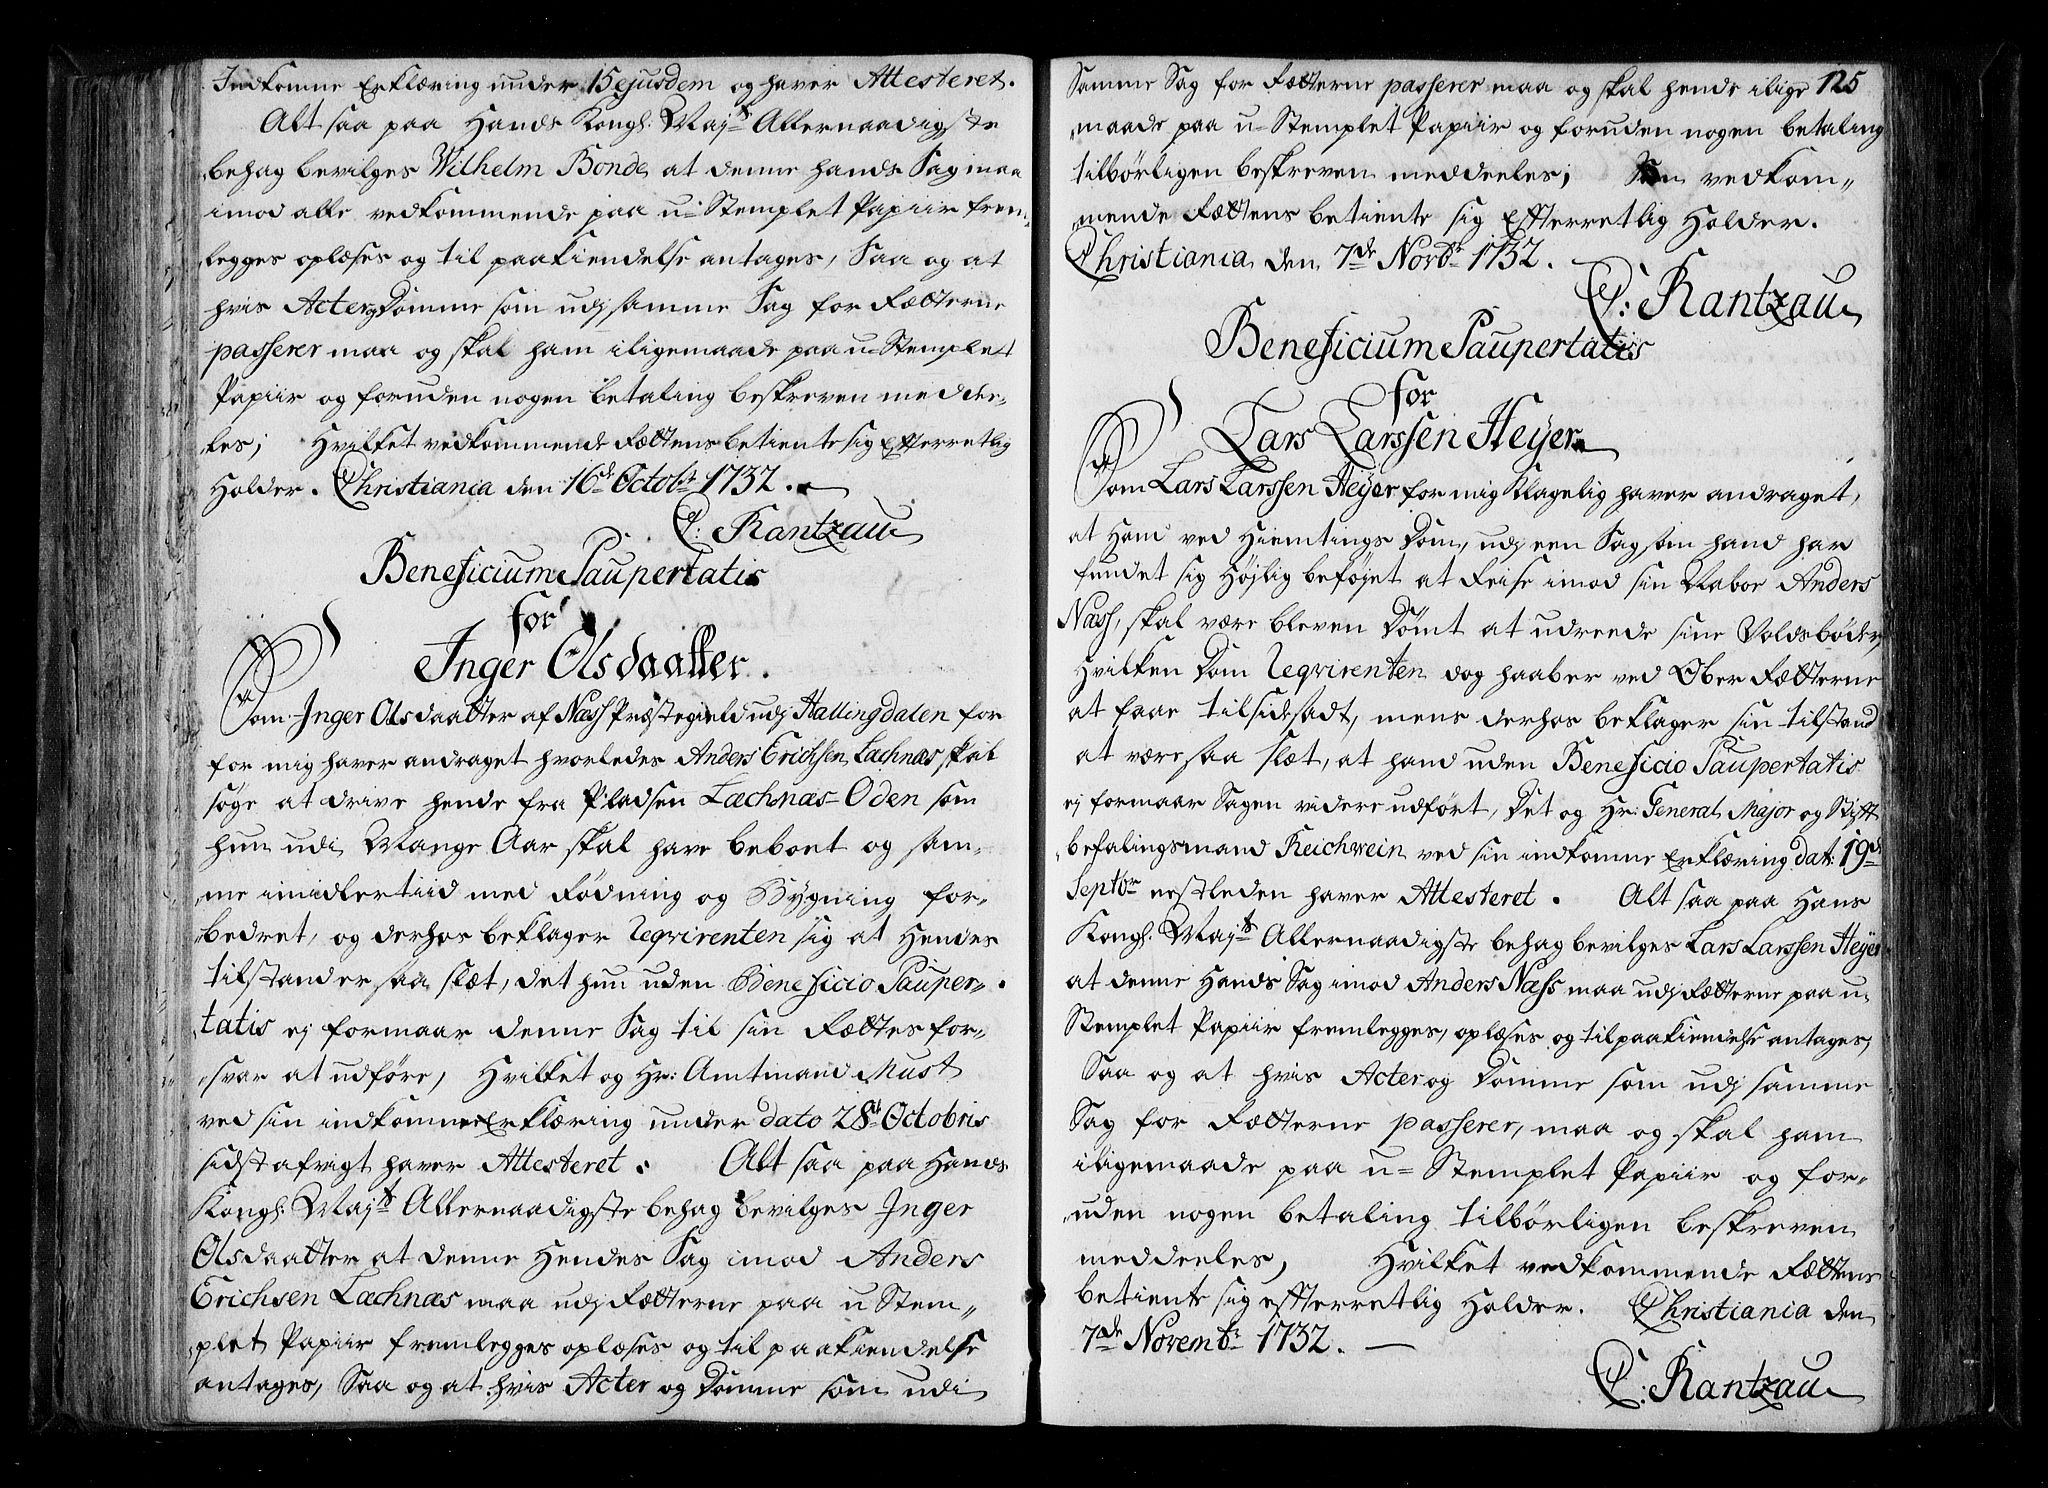 Indkomne Erklæring under 15 ejusdem og haver Attesteret.
Alt saa paa Hands Kongl: Maj:ts Allernaadigste
behag bevilges Wilhelm Bonde, at denne hands Sag maa
imod alle vedkommende paa u-Stemplet Papiir frem-
legges oplæses og til paakiendelse antages, Saa og at
hvis Acter og Domme som udj samme Sag for Rætterne
passerer maa og skal ham iligemaade paa u-Stemplet
Papiir og foruden nogen betaling beskreven meddee-
les; Hvilket vedkommende Rættens betiente sig Efterretlig
Holder. Christiania den 16de Octobr: 1732.
C: Rantzau
Beneficium Paupertatis
for
Inger Olsdaatter.
Som Inger Olsdaatter af Næss Præstegield udj Hallingdalen for
for mig haver andraget hvorledes Anders Erichsen Læchnæs skal
søge at drive hende fra Pladsen Læchnæs-Öden som
hun udi Mange Aar skal have beboet og sam-
me imidlertiid med Rødning og Bygning for-
bedret, og derhos beklager Reqvirenten sig at Hendes
tilstand er saa slæt, det hun uden Beneficio Pauper-
tatis ej formaar denne Sag til sin Rættes for-
svar at udføre, Hvilket og Hr: Amtmand Must
ved sin indkomne Erklæring under dato 28de Octobris
sidst afvigt haver Attesteret. Alt saa paa Hands
Kongl: Maj:ts Allernaadigste behag bevilges Inger
Olsdaatter at denne Hendes Sag imod Anders
Erichsen Læchnæs maa udj Rætterne paa u Stem-
plet Papiir fremlegges oplæses og til paakiendelse
antages, Saa og at hvis Acter og Domme som udi
Samme Sag for Rætterne passerer maa og skal hende ilige 125
maade paa u-Stemplet Papiir og foruden nogen betaling
tilbörligen beskreven meddeeles; vedkom-
mende Rættens betiente sig Efterretlig Holder.
Christiania den 7de Novbr: 1732.
C: Rantzau
Beneficium Paupertatis
for
Lars Larssen Heyer
Som Lars Larssen Heyer for mig Klagelig haver andraget,
at Hand ved Hiemtings Dom, udj een Sag som hand har
fundet sig Højlig beføjet at Reise imod sin Nabor Anders
Næss, skal være bleven Dömt at udreede sine Voldsböder,
Hvilken Dom Reqvirenten dog haaber ved Ober Rætterne
at faae tilsidesadt, mens derhos beklager sin tilstand
at være saa slæt, at hand uden Beneficio Paupertatis
ej formaar Sagen videre udfört, Det og Hr: General Major og Stift
befalingsmand Reichwein ved sin indkomne Erklæring dat: 19de
Septbr: nestleden haver Attesteret. Alt saa paa Hans
Kongl: Maj:ts Allernaadigste behag bevilges Lars Larssen Heyer
at denne Hands Sag imod Anders Næss maa udj Rætterne paa u-
Stemplet Papiir fremlegges, oplæses og til paakiendelse antages,
Saa og at hvis Acter og Domme som udj samme
Sag for Rætterne passerer, maa og skal ham
iligemaade paa u-Stemplet Papiir og for-
uden nogen betaling tilbörligen beskreven
meddeeles, Hvilket vedkommende Rættens
betiente sig efterretlig Holder. Christiania den
7de Novembr: 1732.
C: Rantzau